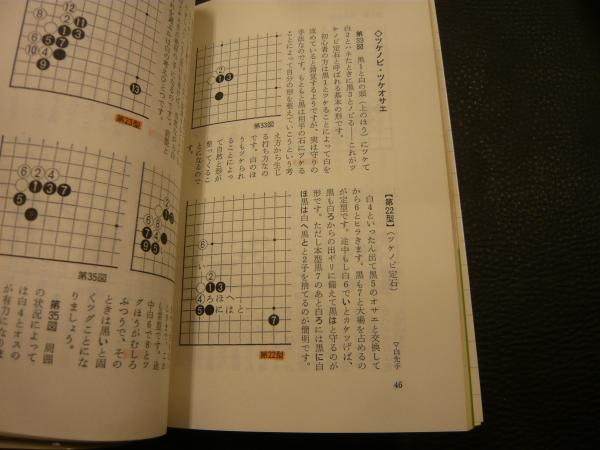 ◇ツケノビ・ツケオサエ
第33図 黒1と白の頭(上のほう)にツケて
白2とハネたときに黒3とノビる――これがツ
ケノビ定石と呼ばれる基本の形です。
初心者の方は黒1とツケることによって白を
攻めていると錯覚するようですが、実は守りの
手法なのです。もともと黒は相手の石にツケる
ことによって自分の形を整えていこうという考
え方から生じ
る打ち方なの
です。白のほ
うもツケられ
ることによっ
て自然と形が
整ってくるこ
とになるので
第33図
【第22型】(ツケノビ定石)
▽白先手
白4といったん出て黒5のオサエと交換して
から6とヒラきます。黒も7と大場を占めるの
が定型です。途中もし白6でいとカケツげば、
黒も白ろからの出ギリに備えて黒はと守るのが
形です。ただし本型黒7のあと白ろには黒に白
ほ黒は白へ黒とと2子を捨てるのが簡明です。
第22型
46
第23型
第35図
中白6で8とツ
グほうがむしろ
ふつうで、その
ときは黒いと固
くツグことにな
りましょう。
第35図 周囲
の状況によって
は白4とオスの
が有力になりま